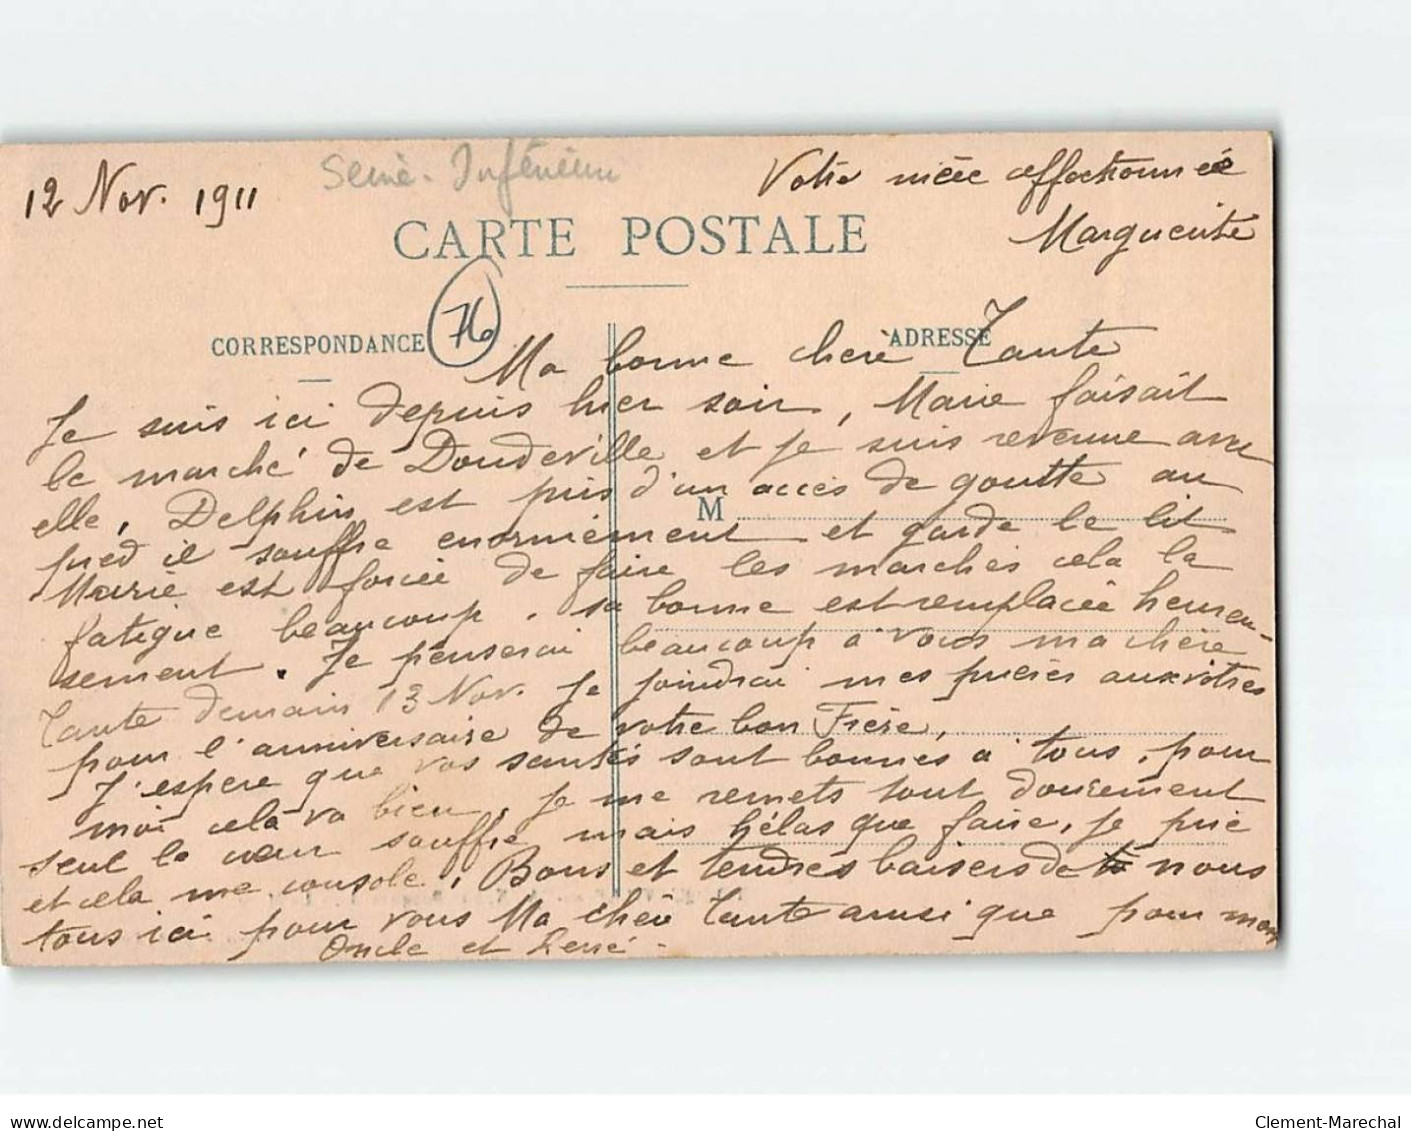 12 Nov. 1911
Seine-Inférieure
Votre nièce affectionnée
Marguerite
CARTE POSTALE
CORRESPONDANCE
76
ADRESSE
Ma bonne chère Tante
Je suis ici depuis hier soir, Marie faisait
le marché de Doudeville et je suis revenue avec
elle, Delphin est pris d'un accès de goutte au
M
pied il souffre enormément et garde le lit
Marie est forcée de faire les marchés cela la
fatigue beaucoup. sa bonne est remplacée heureu-
sement. Je penserai beaucoup a vous ma chère
Tante demain 13 Nov. Je joindrai mes prières aux vôtres
pour l'anniversaire de votre bon Frère,
J'espere que vos santés sont bonnes a tous, pour
moi cela va bien, je me remets tout doucement
seul le cœur souffre mais hélas que faire, je prie
et cela me console. Bons et tendres baisers de nous
tous ici pour vous Ma chère Tante ainsi que pour mon
Oncle et
Clement-Marechal
www.delcampe.net